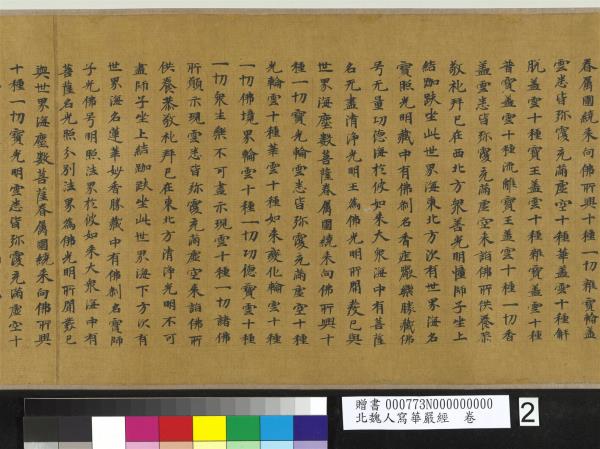 眷属圍繞来向佛所興十種一切雜寳輪盖
雲悉皆弥覆充滿虚空十種華盖雲十種解
脱盖雲十種寳王盖雲十種雜寳盖雲十種
普寳盖雲十種流離寳王盖雲十種一切香
盖雲悉皆弥覆充滿虚空来詣佛所供養恭
敬礼拜已在西北方衆善光明幢師子坐上
結跏趺坐此世界海東北方次有世界海名
寳照光明藏中有佛刹名香庄嚴樂勝藏佛
号无量功德海於彼如来大衆海中有菩薩
名无盡清淨光明王為佛光明所開發已與
世界海塵數菩薩眷属圍繞来向佛所興十
種一切寳光輪雲悉皆弥覆充滿虚空十種
光輪雲十種華雲十種如来變化輪雲十種
一切佛境界輪雲十種一切功德寳雲十種
一切衆生樂不可盡示現雲十種一切諸佛
所願示現雲悉皆弥覆充滿虚空来詣佛所
供養恭敬礼拜已在東北方清淨光明不可
盡師子坐上結跏趺坐此世界海下方次有
世界海名蓮華妙香勝藏中有佛刹名寳師
子光佛号明照法界於彼如来大衆海中有
菩薩名光照分別法界為佛光明所開發已
與世界海塵數菩薩眷属圍繞来向佛所興
十種一切寳光明雲悉皆弥覆充滿虚空十
贈書 000773N000000000
北魏人寫華嚴經 卷
2